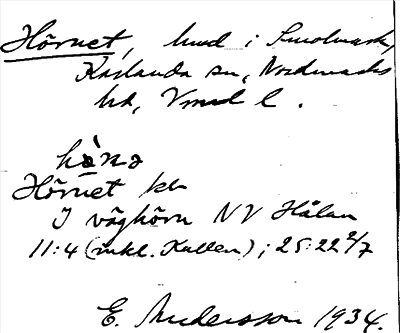 Hörnet, hmd i Smolmark,
Karlanda sn, Nordmarks
hd, Vrmd l.
hὰ̣nə
Hörnet kb
I väghörn NV Hålan
11:4 (inkl. Kullen); 25:22 2/7
E. Andersson 1934.